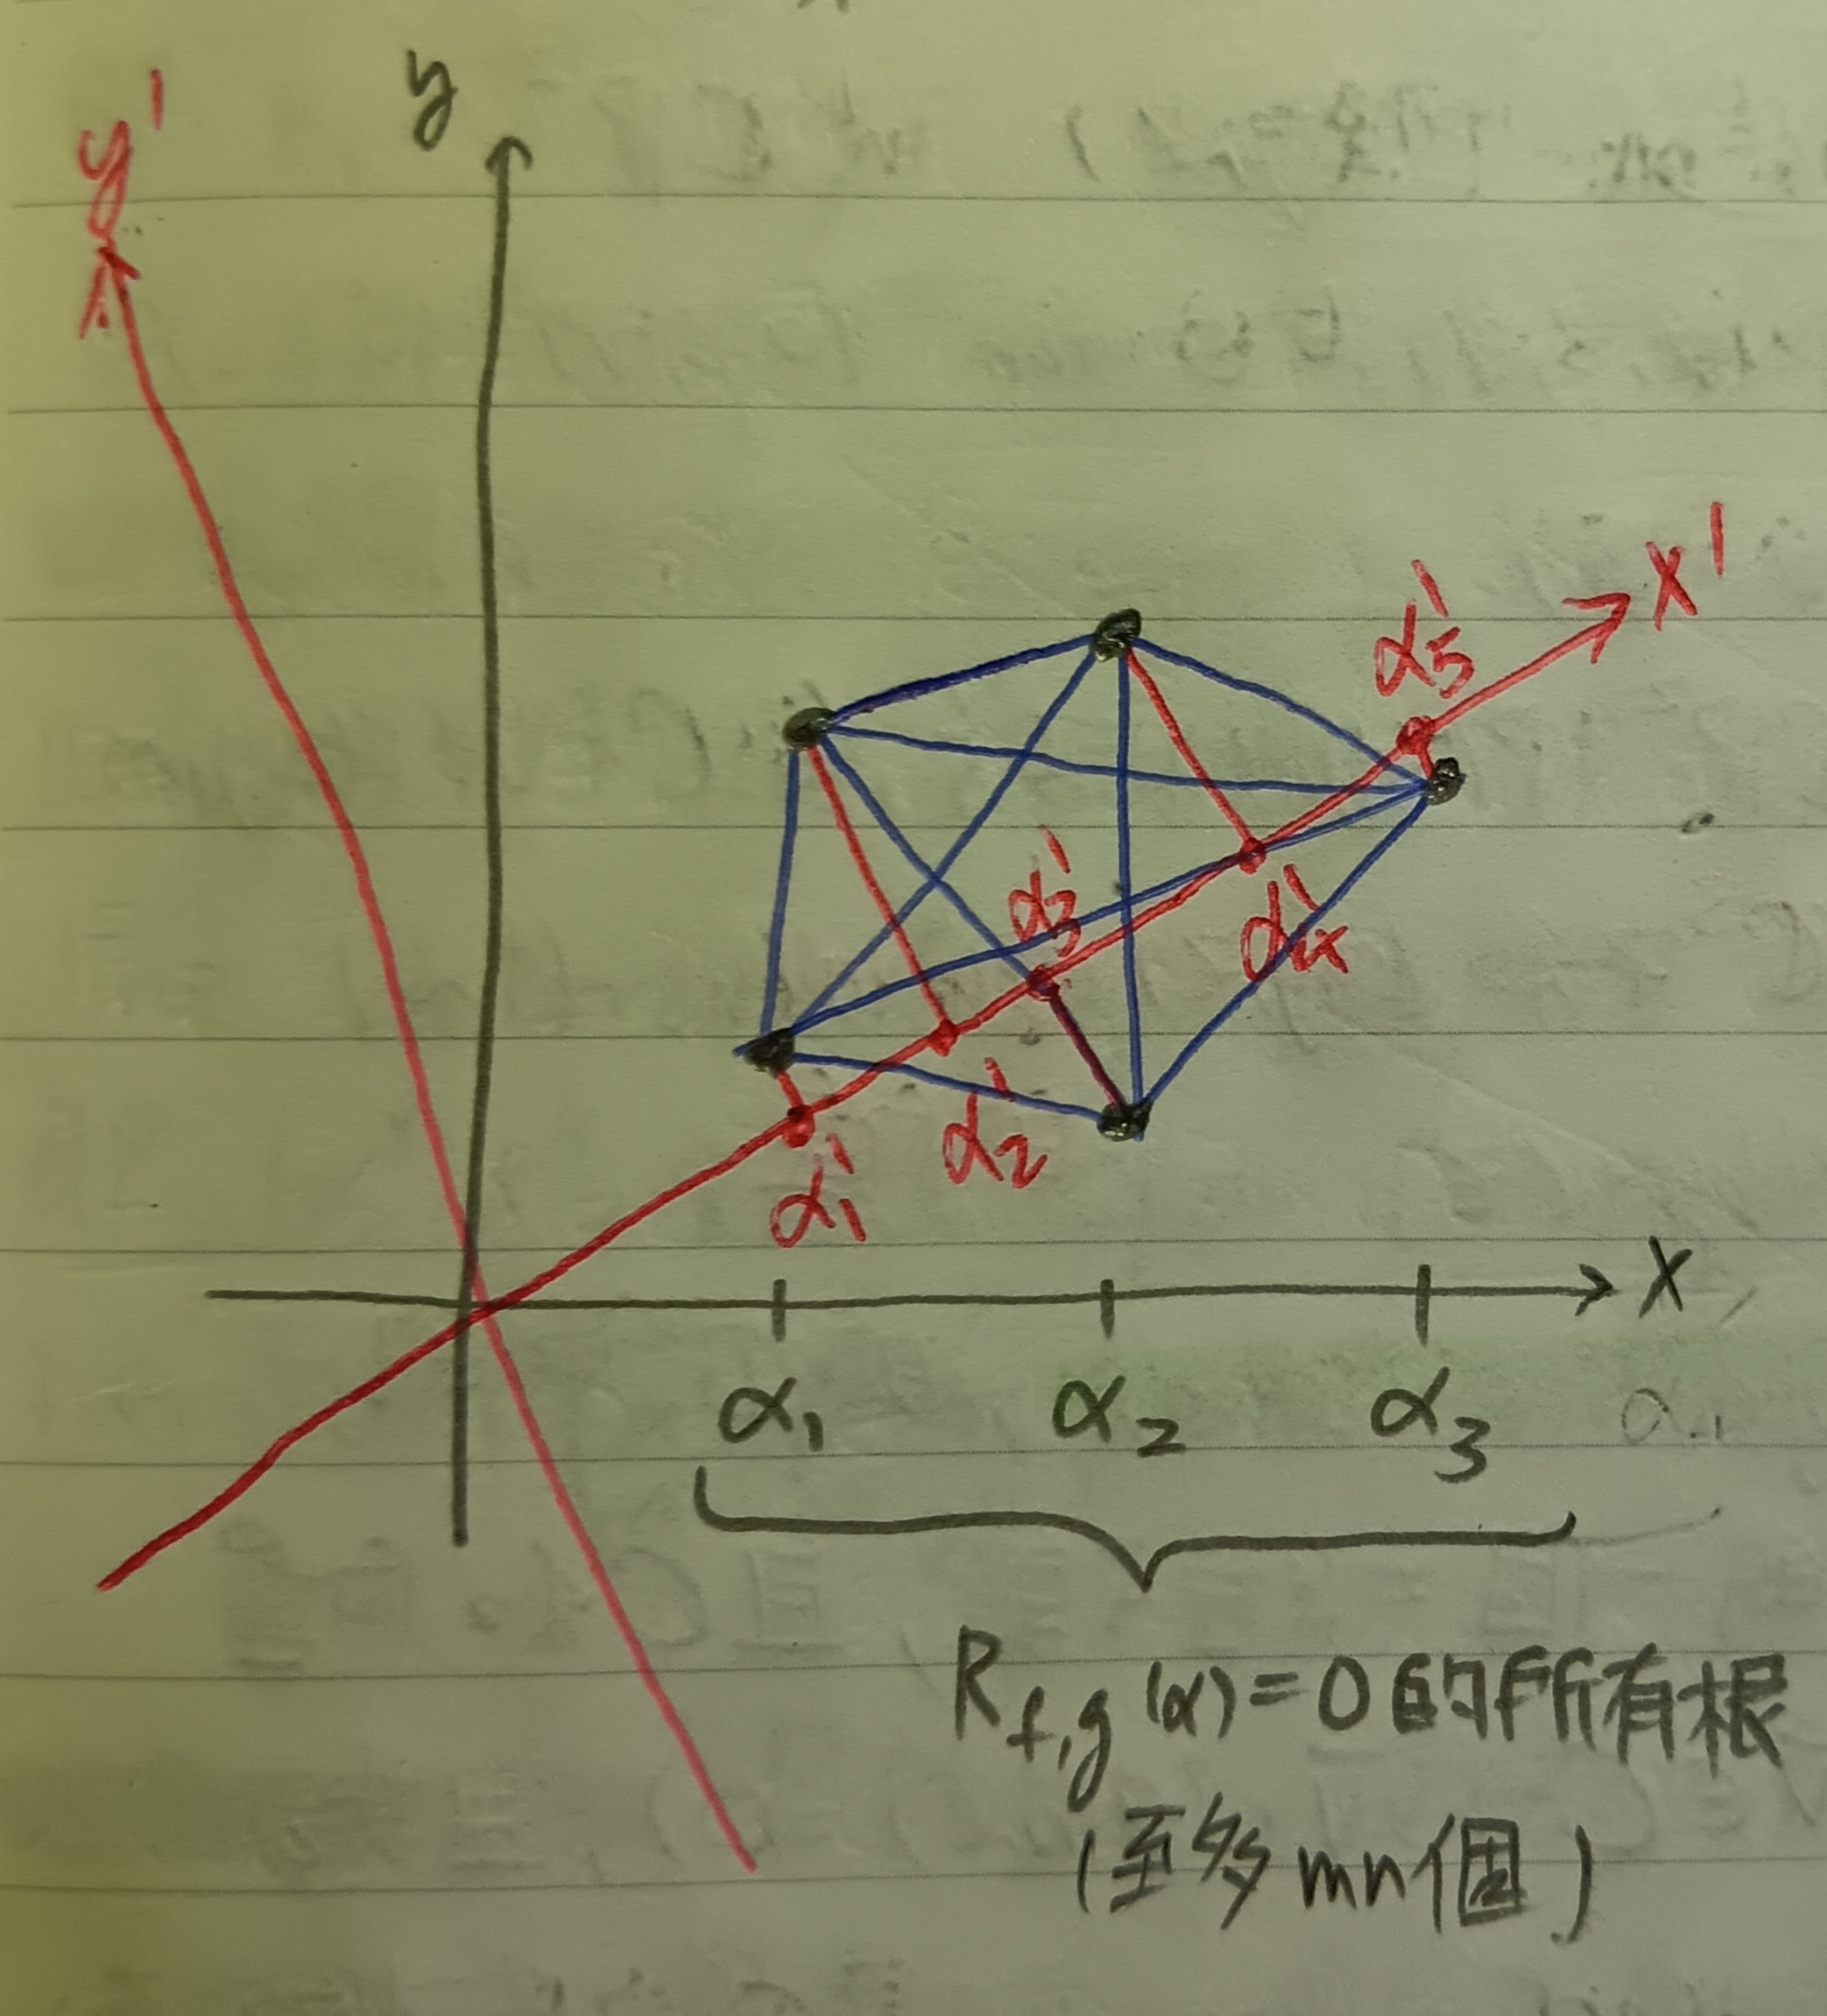 y'
y
x'
α'₅
α'₃
α'₄
α'₂
α'₁
x
α₁ α₂ α₃
R_{f,g}(α)=0的所有根
(至多mn個)